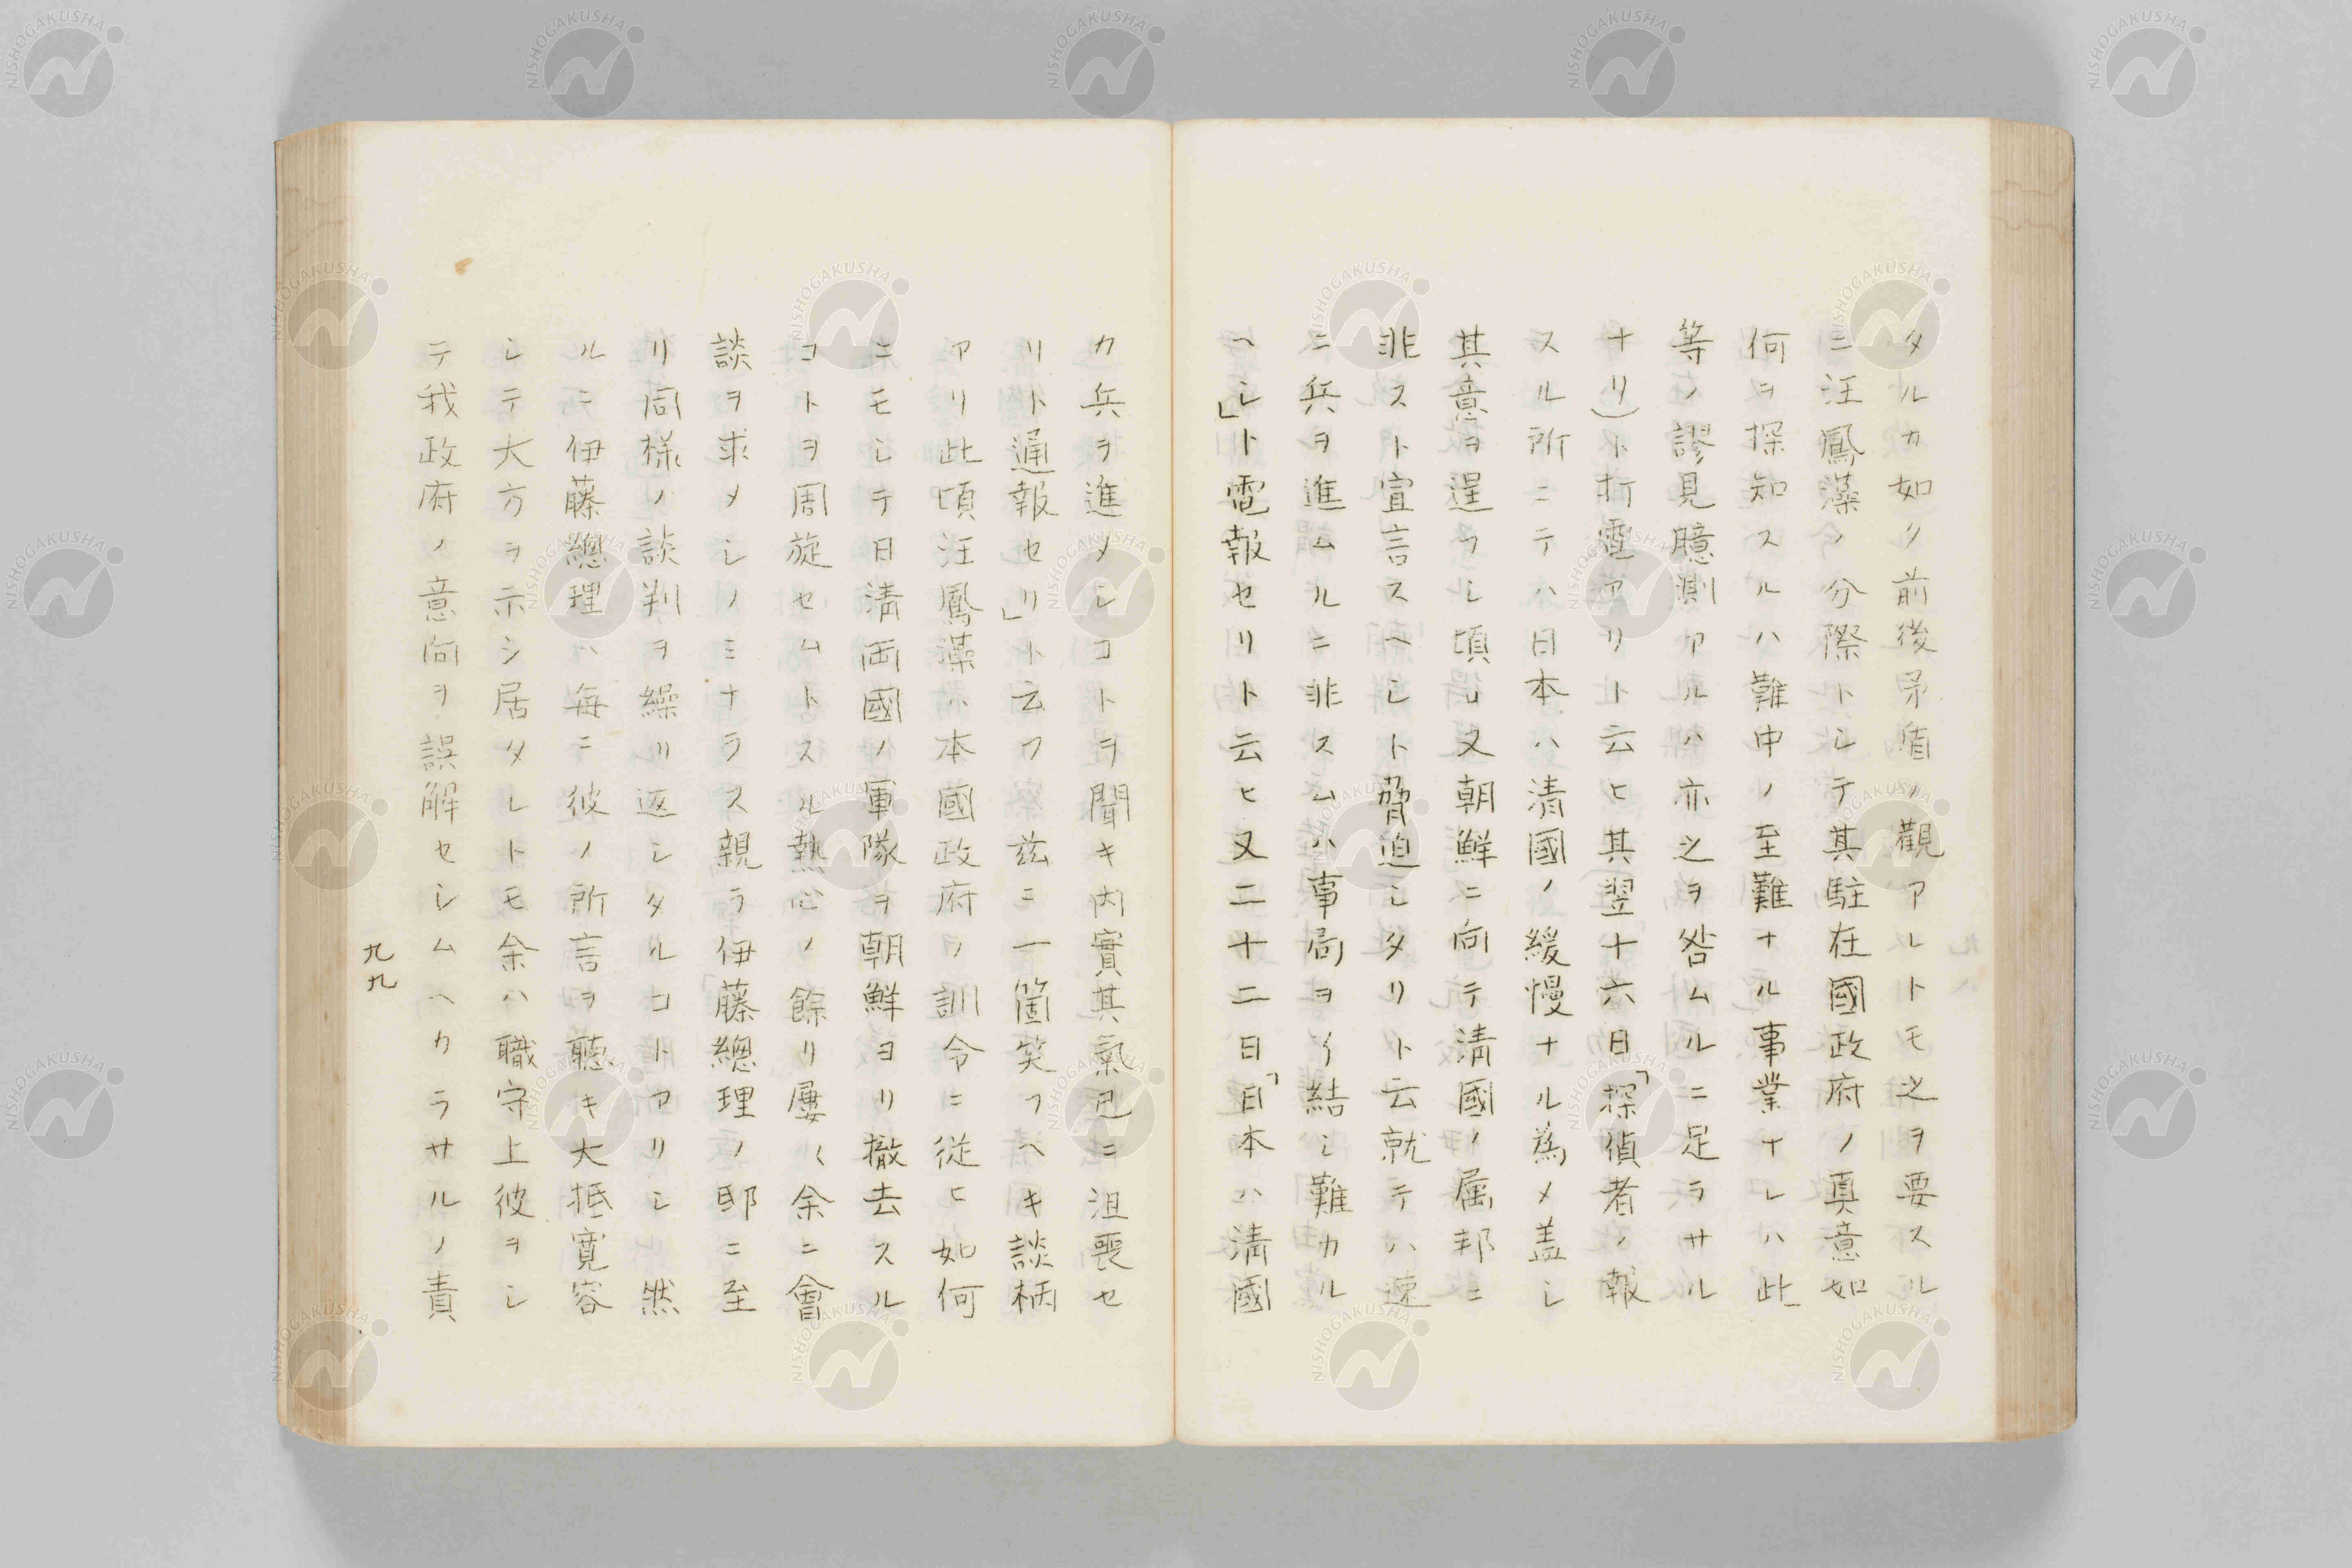 タルカ如ク前後矛盾ノ觀アルトモ之ヲ要スル
ニ汪鳳藻ノ分際トシテ其駐在國政府ノ真意如
何ヲ探知スルハ難中ノ至難ナル事業ナレハ此
等ノ謬見臆測アルハ亦之ヲ咎ムルニ足ラサル
ナリ)ト打電アリト云ヒ其翌十六日「探偵者ノ報
スル所ニテハ日本ハ清國ノ緩慢ナル為メ盖シ
其意ヲ逞ウシ頃ム又朝鮮ニ向テ清國ノ属邦ニ
非スト宣言スヘシト脅迫シタリト云就テハ速
ニ兵ヲ進ムルニ非スムハ事局ヲ結シ難カル
ヘシ」ト電報セリト云ヒ又二十二日「日本ハ清國
カ兵ヲ進メシコトヲ聞キ内實其氣已ニ沮喪セ
リト通報セリ」ト云フ茲ニ一箇笑フヘキ談柄
アリ此頃汪鳳藻ハ本國政府ノ訓令ニ従ヒ如何
ニモシテ日清両國ノ軍隊ヲ朝鮮ヨリ撤去スル
コトヲ周旋セムトスル熱心ノ餘リ屢〱余ニ會
談ヲ求メシノミナラス親ラ伊藤總理ノ邸ニ至
リ同様ノ談判ヲ繰リ返シタルコトアリシ然
ルニ伊藤總理ハ毎ニ彼ノ所言ヲ聴キ大抵寛容
シテ大方ヲ示シ居タレトモ余ハ職守上彼ヲシ
テ我政府ノ意向ヲ誤解セシムヘカラサルノ責
九九
NISHOGAKUSHA